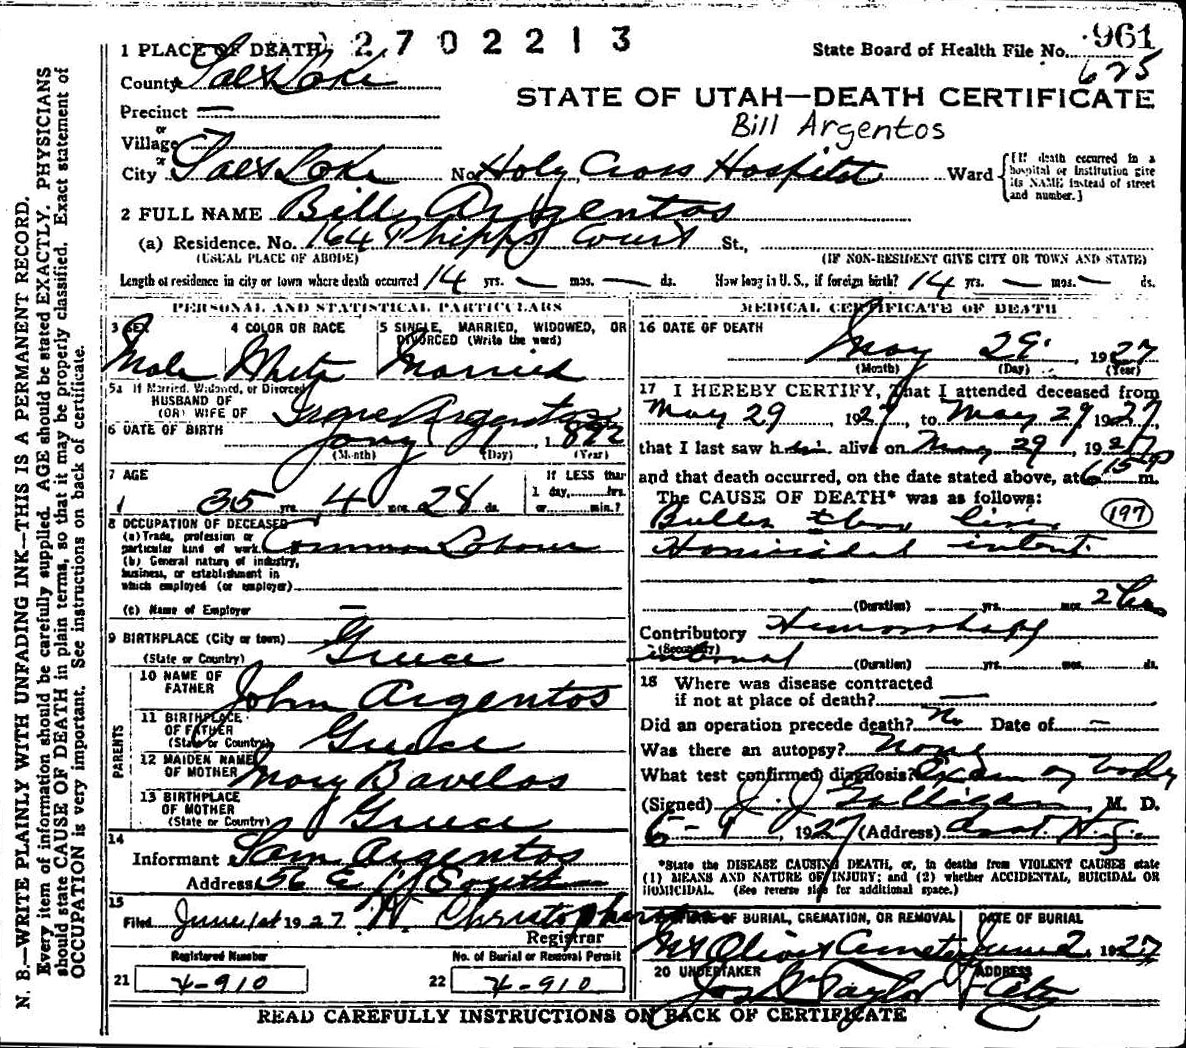 1 PLACE OF DEATH 2702213 State Board of Health File No. 961
County Salt Lake 625
STATE OF UTAH—DEATH CERTIFICATE
Precinct —
Bill Argentos
or
Village
or
City Salt Lake No. Holy Cross Hospital Ward [If death occurred in a hospital or institution give its NAME instead of street and number.]
2 FULL NAME Bill Argentos
(a) Residence. No. 164 Phipps Court St.,
(USUAL PLACE OF ABODE) (IF NON-RESIDENT GIVE CITY OR TOWN AND STATE)
Length of residence in city or town where death occurred 14 yrs. — mos. — ds. How long in U. S., if foreign birth? 14 yrs. — mos. — ds.
PERSONAL AND STATISTICAL PARTICULARS
3 SEX 4 COLOR OR RACE 5 SINGLE, MARRIED, WIDOWED, OR DIVORCED (Write the word)
Male White Married
5a If Married, Widowed, or Divorced
HUSBAND OF
(OR) WIFE OF Irene Argentos
6 DATE OF BIRTH Jany 1, 1892
(Month) (Day) (Year)
7 AGE If LESS than
35 yrs. 4 mos. 28 ds. 1 day, hrs.
or min.?
8 OCCUPATION OF DECEASED
(a) Trade, profession or
particular kind of work Common Laborer
(b) General nature of industry,
business, or establishment in
which employed (or employer)
(c) Name of Employer —
9 BIRTHPLACE (City or town)
(State or Country) Greece
PARENTS
10 NAME OF
FATHER John Argentos
11 BIRTHPLACE
OF FATHER
(State or Country) Greece
12 MAIDEN NAME
OF MOTHER Mary Bavelas
13 BIRTHPLACE
OF MOTHER
(State or Country) Greece
14
Informant Sam Argentos
Address 56 E South
15
Filed June 1st 1927 H. Christopherson
Registrar
Registered Number No. of Burial or Removal Permit
21 X-910 22 X-910
MEDICAL CERTIFICATE OF DEATH
16 DATE OF DEATH
May 29, 1927
(Month) (Day) (Year)
17 I HEREBY CERTIFY, That I attended deceased from
May 29, 1927, to May 29 1927
that I last saw him alive on May 29, 1927
and that death occurred, on the date stated above, at 6:15 P m.
The CAUSE OF DEATH* was as follows:
Bullet thru liver (197)
Homicidal intent.
(Duration) yrs. mos. 2 hrs
Contributory Hemorrhage
(Secondary)
internal (Duration) yrs. mos. ds.
18 Where was disease contracted
if not at place of death? —
Did an operation precede death? No Date of —
Was there an autopsy? None
What test confirmed diagnosis? Exam of body
(Signed) J. J. Galligan, M. D.
6-1, 1927 (Address)
*State the DISEASE CAUSING DEATH, or, in deaths from VIOLENT CAUSES state
(1) MEANS AND NATURE OF INJURY; and (2) whether ACCIDENTAL, SUICIDAL OR
HOMICIDAL. (See reverse side for additional space.)
OF BURIAL, CREMATION, OR REMOVAL DATE OF BURIAL
Mt Olivet Cemetery June 2, 1927
20 UNDERTAKER ADDRESS
Jos Wm Taylor City
READ CAREFULLY INSTRUCTIONS ON BACK OF CERTIFICATE
N. B.—WRITE PLAINLY WITH UNFADING INK—THIS IS A PERMANENT RECORD.
Every item of information should be carefully supplied. AGE should be stated EXACTLY. PHYSICIANS
should state CAUSE OF DEATH in plain terms, so that it may be properly classified. Exact statement of
OCCUPATION is very important. See instructions on back of certificate.